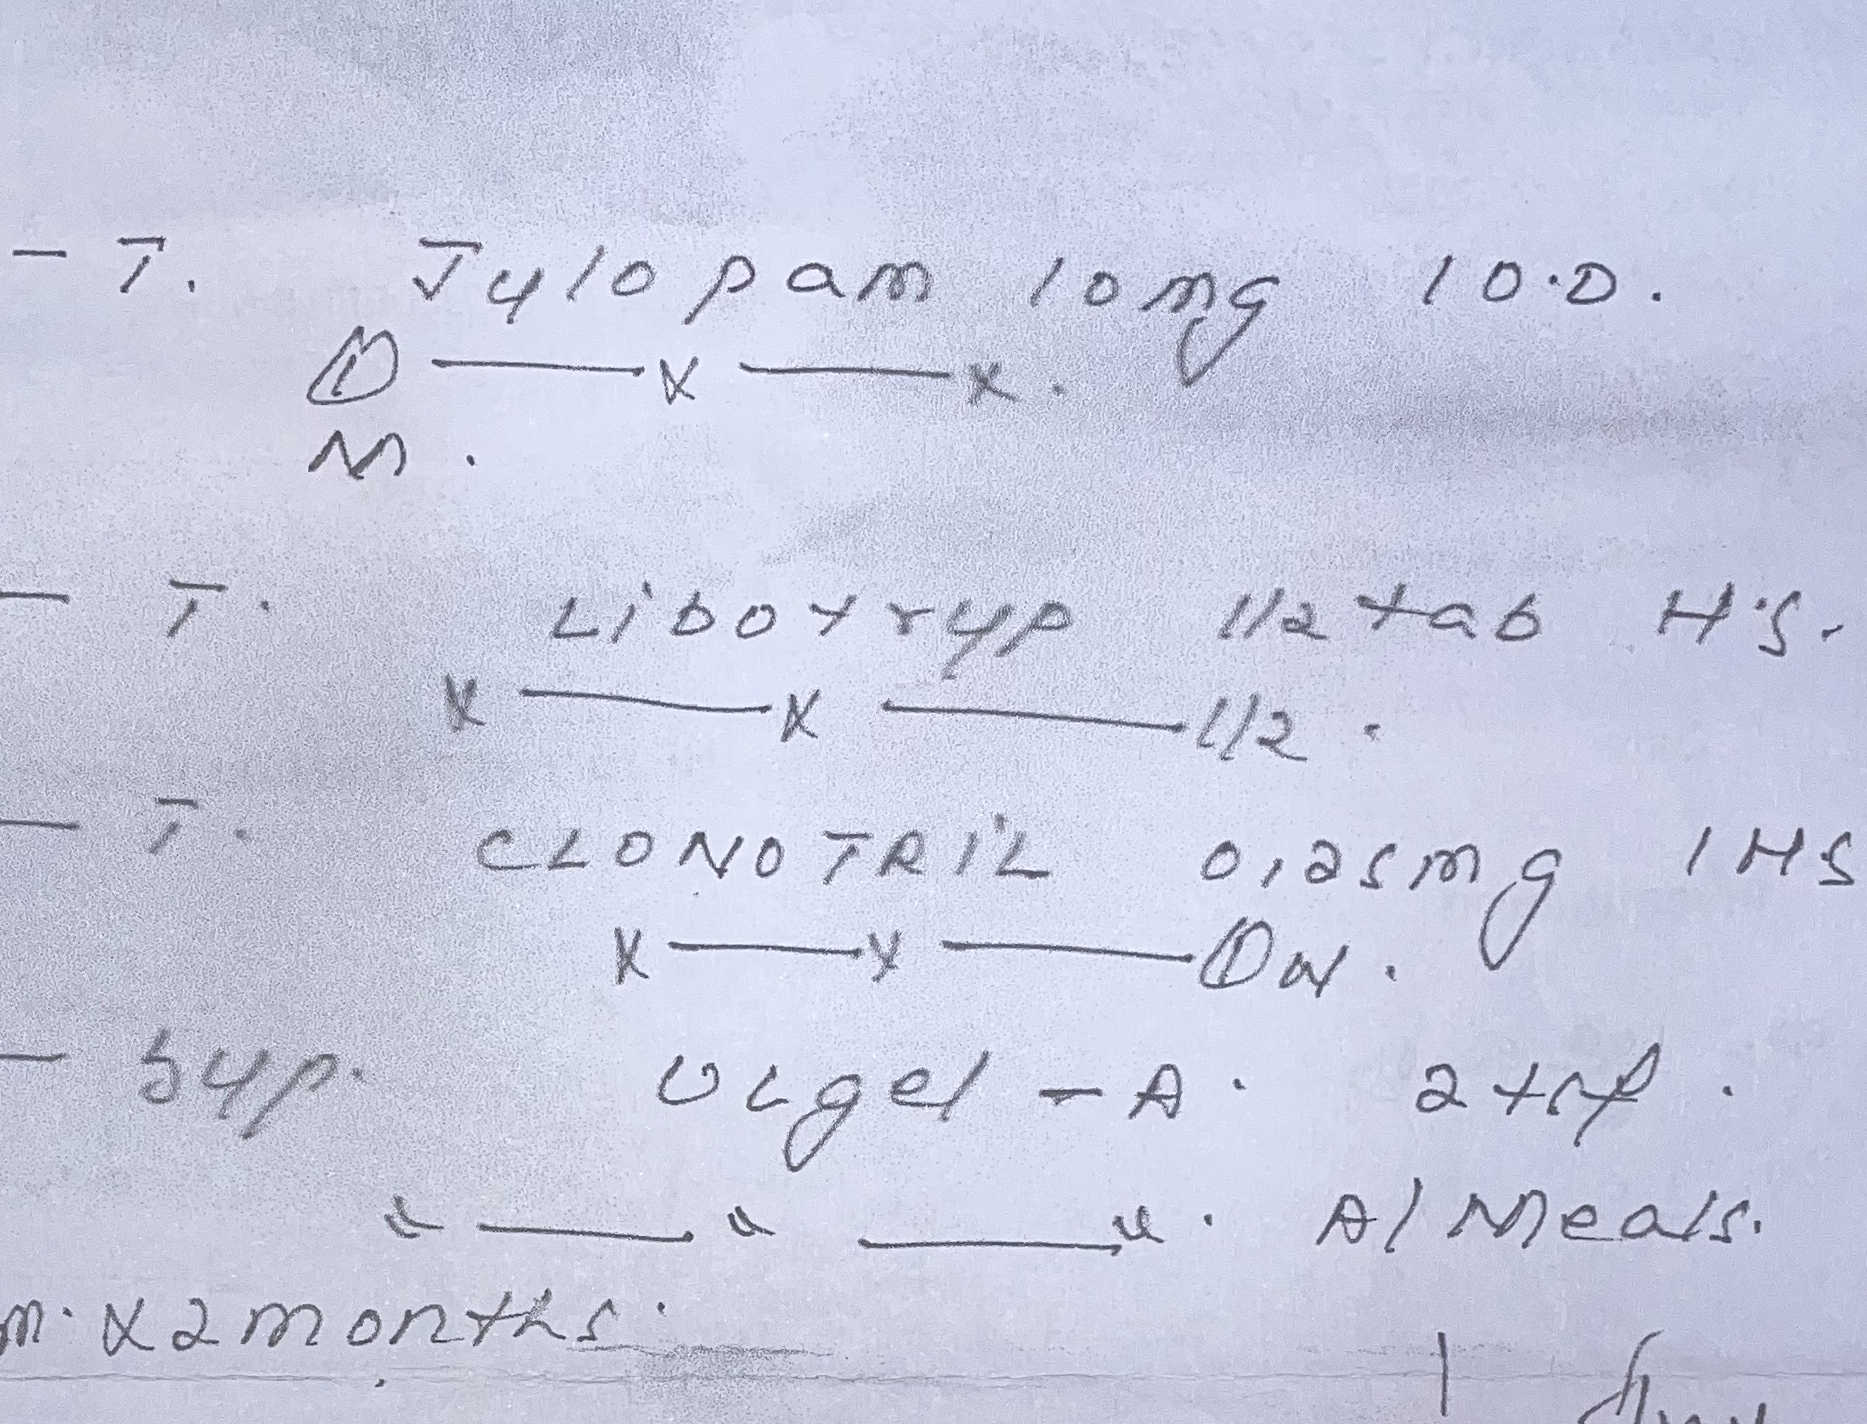 - T. Jylopam 10mg 1 O.D.
① —— x —— x.
M.
— T. Libotryp 1/2 tab H.S.
x —— x —— 1/2.
— T. CLONOTRIL 0.25mg 1 HS
x —— x —— ① N.
— Syp. Ulgel - A. 2 tsf.
—— —— . A/ Meals.
m. x 2 months.